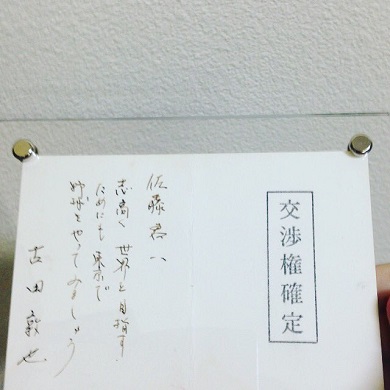 交渉権確定
佐藤君へ
志高く 世界を目指す
ためにも東京で
野球をやってみましょう
古田敦也